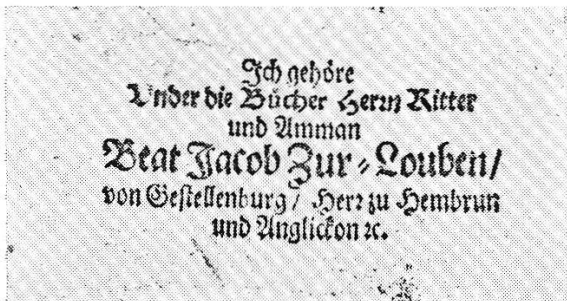 Ich gehöre
Under die Bücher Herrn Ritter
und Amman
Beat Jacob Zur-Louben/
von Gestellenburg/ Herr zu Hembrun
und Anglickon ꝛc.